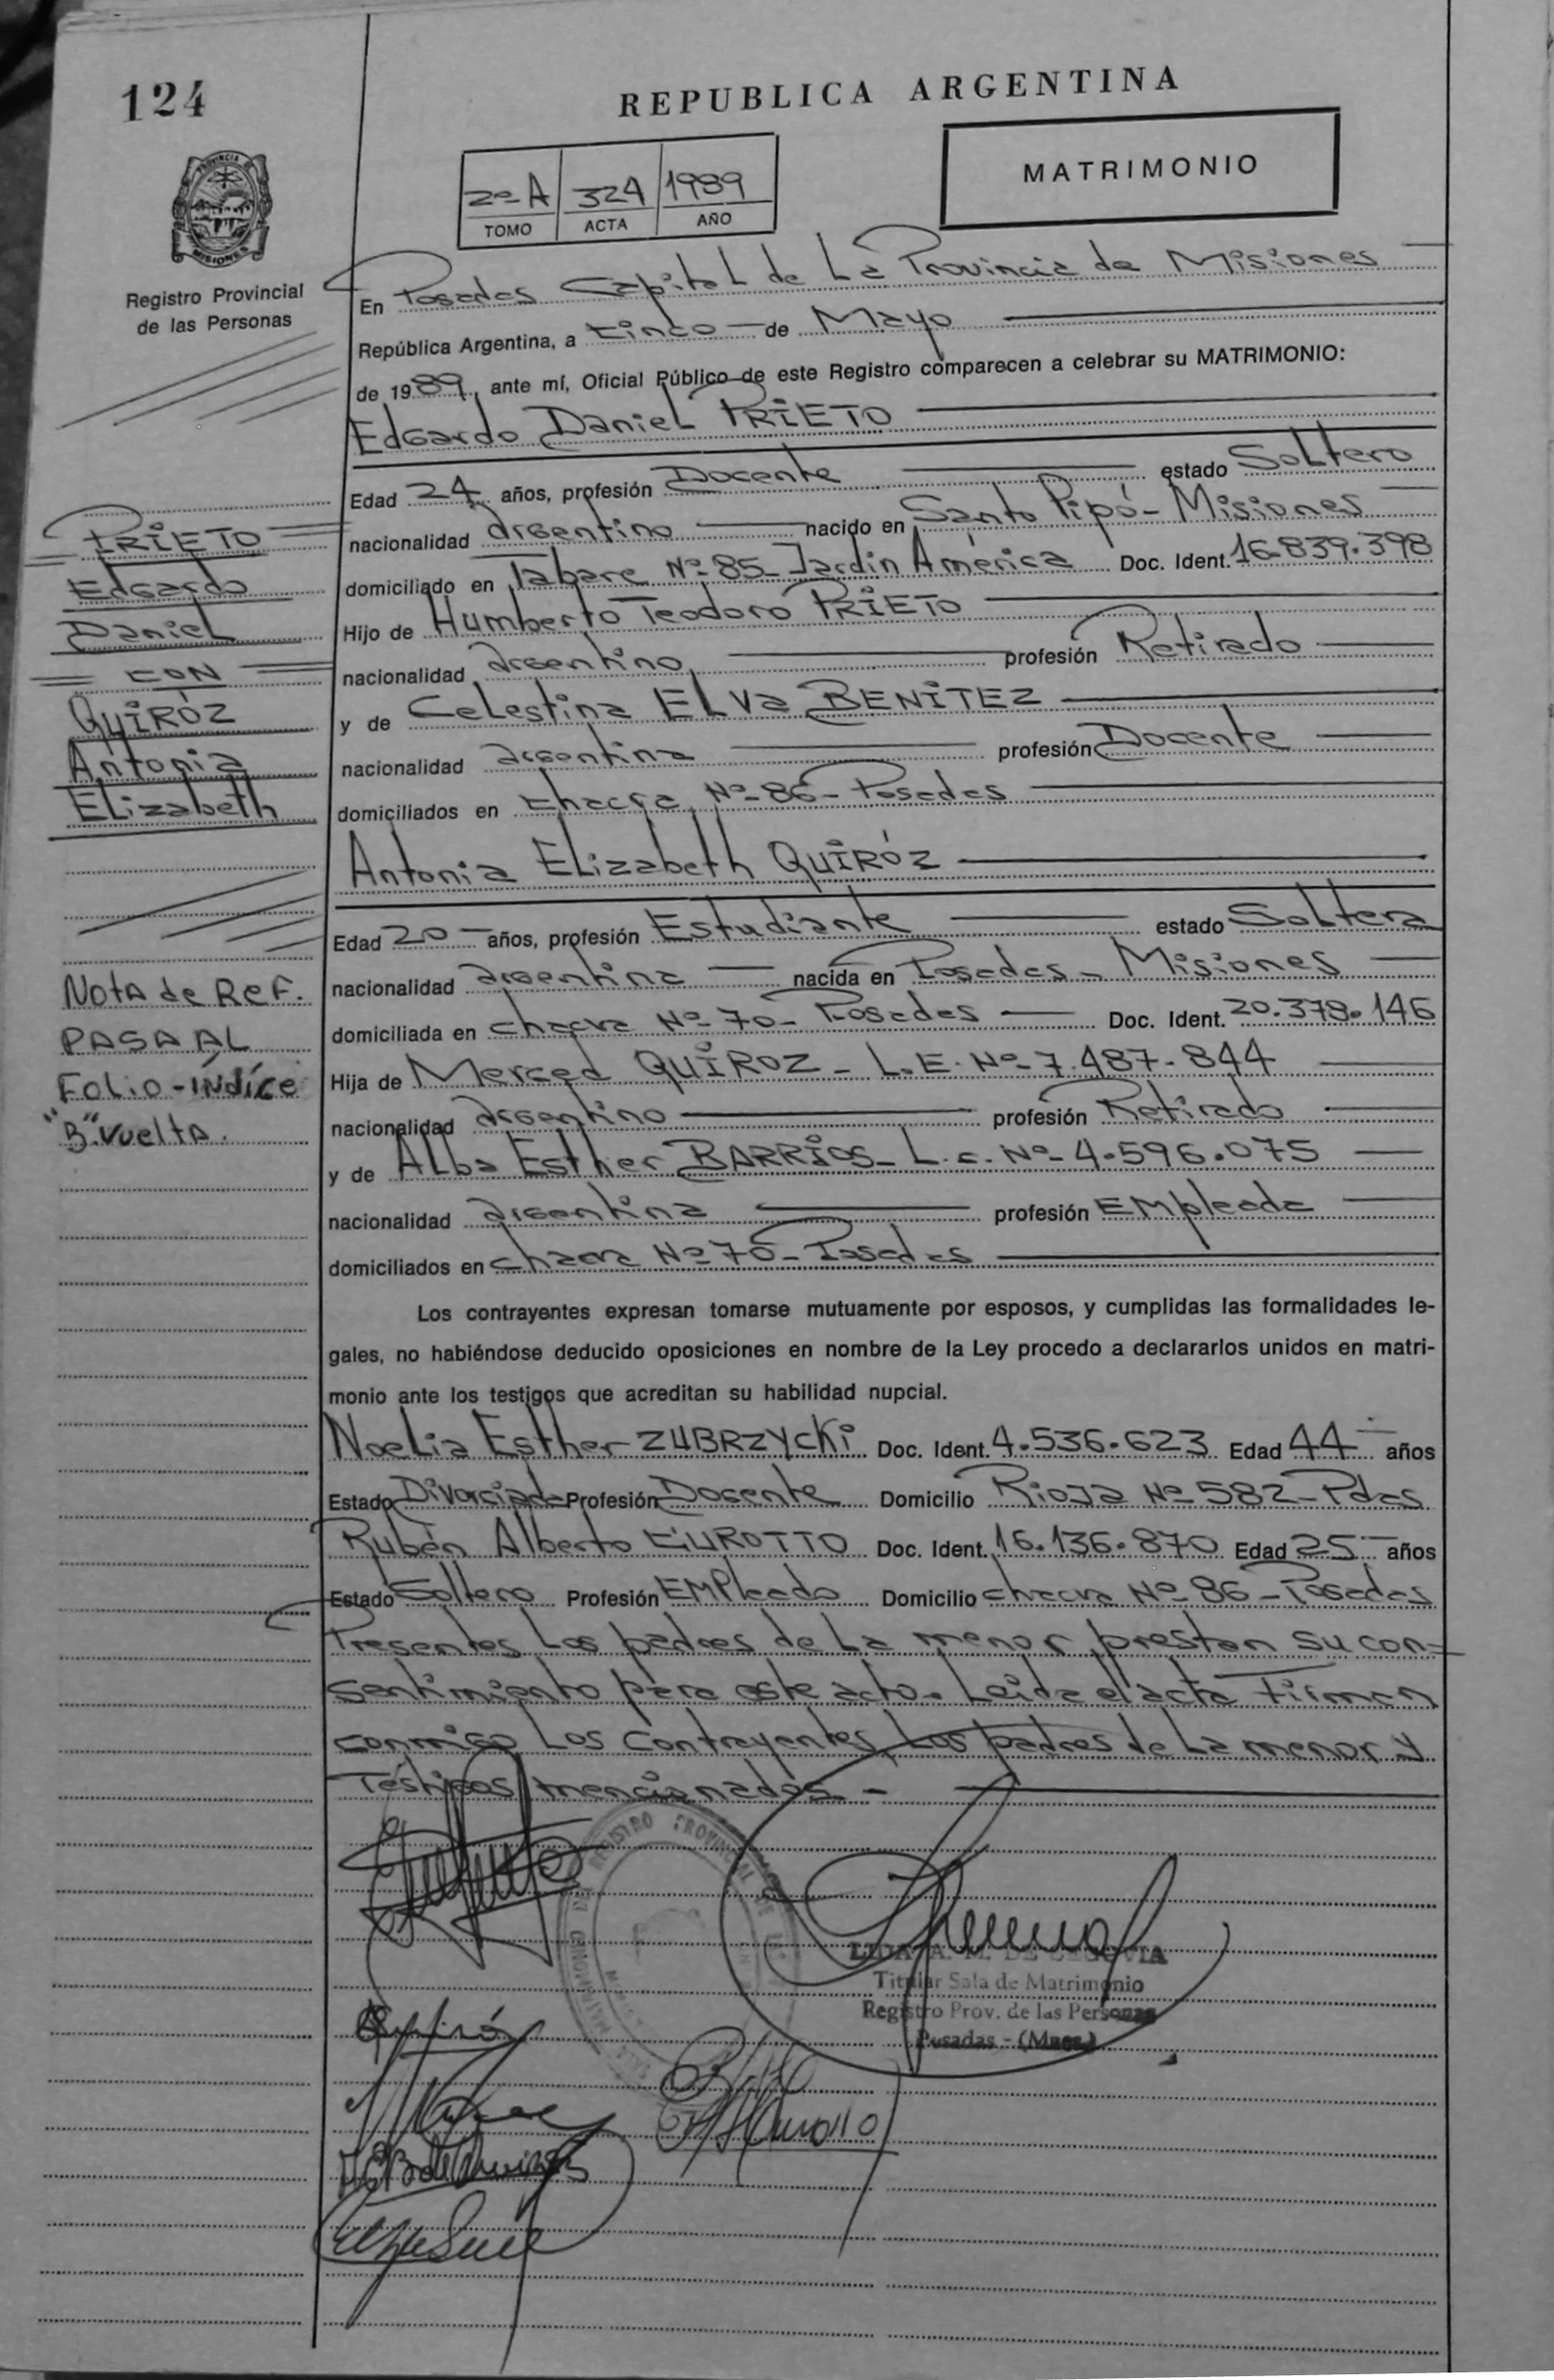 124
REPUBLICA ARGENTINA
PROVINCIA DE
MISIONES
Registro Provincial
de las Personas
2º A 324 1989
TOMO ACTA AÑO
MATRIMONIO
En Posadas Capital de La Provincia de Misiones
República Argentina, a cinco de Mayo
de 1989, ante mí, Oficial Público de este Registro comparecen a celebrar su MATRIMONIO:
Edgardo Daniel PRIETO
Edad 24 años, profesión Docente estado Soltero
nacionalidad argentino nacido en Santo Pipó - Misiones
domiciliado en Tabare Nº 85 - Jardin América Doc. Ident. 16.839.398
Hijo de Humberto Teodoro PRIETO
nacionalidad argentino profesión Retirado
y de Celestina ELVA BENITEZ
nacionalidad argentina profesión Docente
domiciliados en chacra Nº 86 - Posadas
Antonia Elizabeth QUIRÓZ
Edad 20 - años, profesión Estudiante estado Soltera
nacionalidad argentina nacida en Posadas - Misiones
domiciliada en chacra Nº 70 - Posadas Doc. Ident. 20.378.146
Hija de Merced QUIROZ - L.E. Nº 7.487.844
nacionalidad argentino profesión Retirado
y de Alba Esther BARRIOS - L.c. Nº 4.596.075
nacionalidad argentina profesión EMpleada
domiciliados en chacra Nº 70 - Posadas
Los contrayentes expresan tomarse mutuamente por esposos, y cumplidas las formalidades le-
gales, no habiéndose deducido oposiciones en nombre de la Ley procedo a declararlos unidos en matri-
monio ante los testigos que acreditan su habilidad nupcial.
Noelia Esther ZUBRZYCKi Doc. Ident. 4.536.623 Edad 44 años
Estado Divorciada Profesión Docente Domicilio Rioja Nº 582 - Pdas
Rubén Alberto CIUROTTO Doc. Ident. 16.136.870 Edad 25 años
Estado Soltero Profesión EMPleado Domicilio chacra Nº 86 - Posadas
Presentes Los padres de La menor prestan su con-
sentimiento para este acto. Leida el acta Firman
conmigo Los contrayentes Los padres de La menor y
Testigos mencionados -
PRIETO
Edgardo
Daniel
CON
QUIRÓZ
Antonia
Elizabeth
NOTA de REF.
PASA AL
FOLIO - INdíce
"B" VueltA.
REGISTRO PROVINCIAL DE
Titular Sala de Matrimonio
Registro Prov. de las Personas
Posadas - (Mnes.)